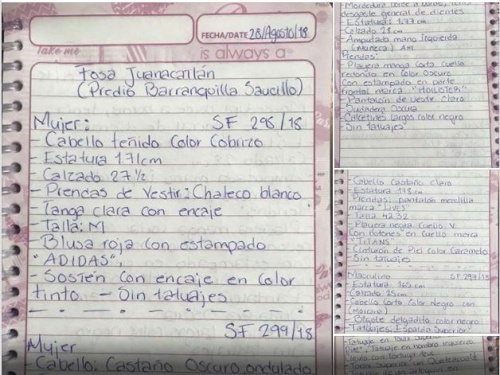 FECHA/DATE 28/Agosto/18
Take me
is always a
Fosa Juanacatlán
(Predio Barranquilla Saucillo)
Mujer: SF 298/18
- Cabello teñido Color Cobrizo
- Estatura 171cm
- Calzado 27 1/2
- Prendas de Vestir: Chaleco blanco
- Tanga clara con encaje
- Talla: M
- Blusa roja Con estampado
"ADIDAS".
- Sostén Con encaje en Color
tinto. - Sin tatuajes
SF 299/18
Mujer
- Cabello: Castaño Oscuro, ondulado
desgaste general de dientes
- Estatura: 177cm
- Calzado 28cm
- Amputada mano izquierda
Prendas:
- Playera manga Corta cuello
redondo en Color Oscuro
Con estampado en parte
frontal marca "HOLLISTER"
- Pantalón de vestir Claro
- Sudadera Oscura
- Calcetines largos Color negro
- Sin tatuajes
- Cabello Castaño claro
- Estatura 173cm
- Prendas: pantalón mezclilla
- Talla 42 32
- Playera negra Cuello V
Con botones en Cuello marca
"TITANS"
- Cinturón de Piel Color Caramelo
- Sin tatuajes
Masculino SF 297/18
- Estatura 165cm
- Calzado 25cm
- Cabello Corto Color Negro Con
- Bigote delgadito Color negro
- Tatuajes: Espalda Superior